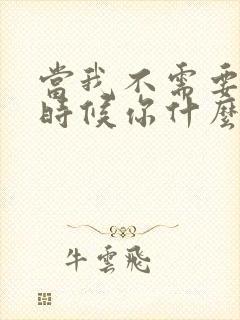 當我不需要
時候你什麼
牛雲飛